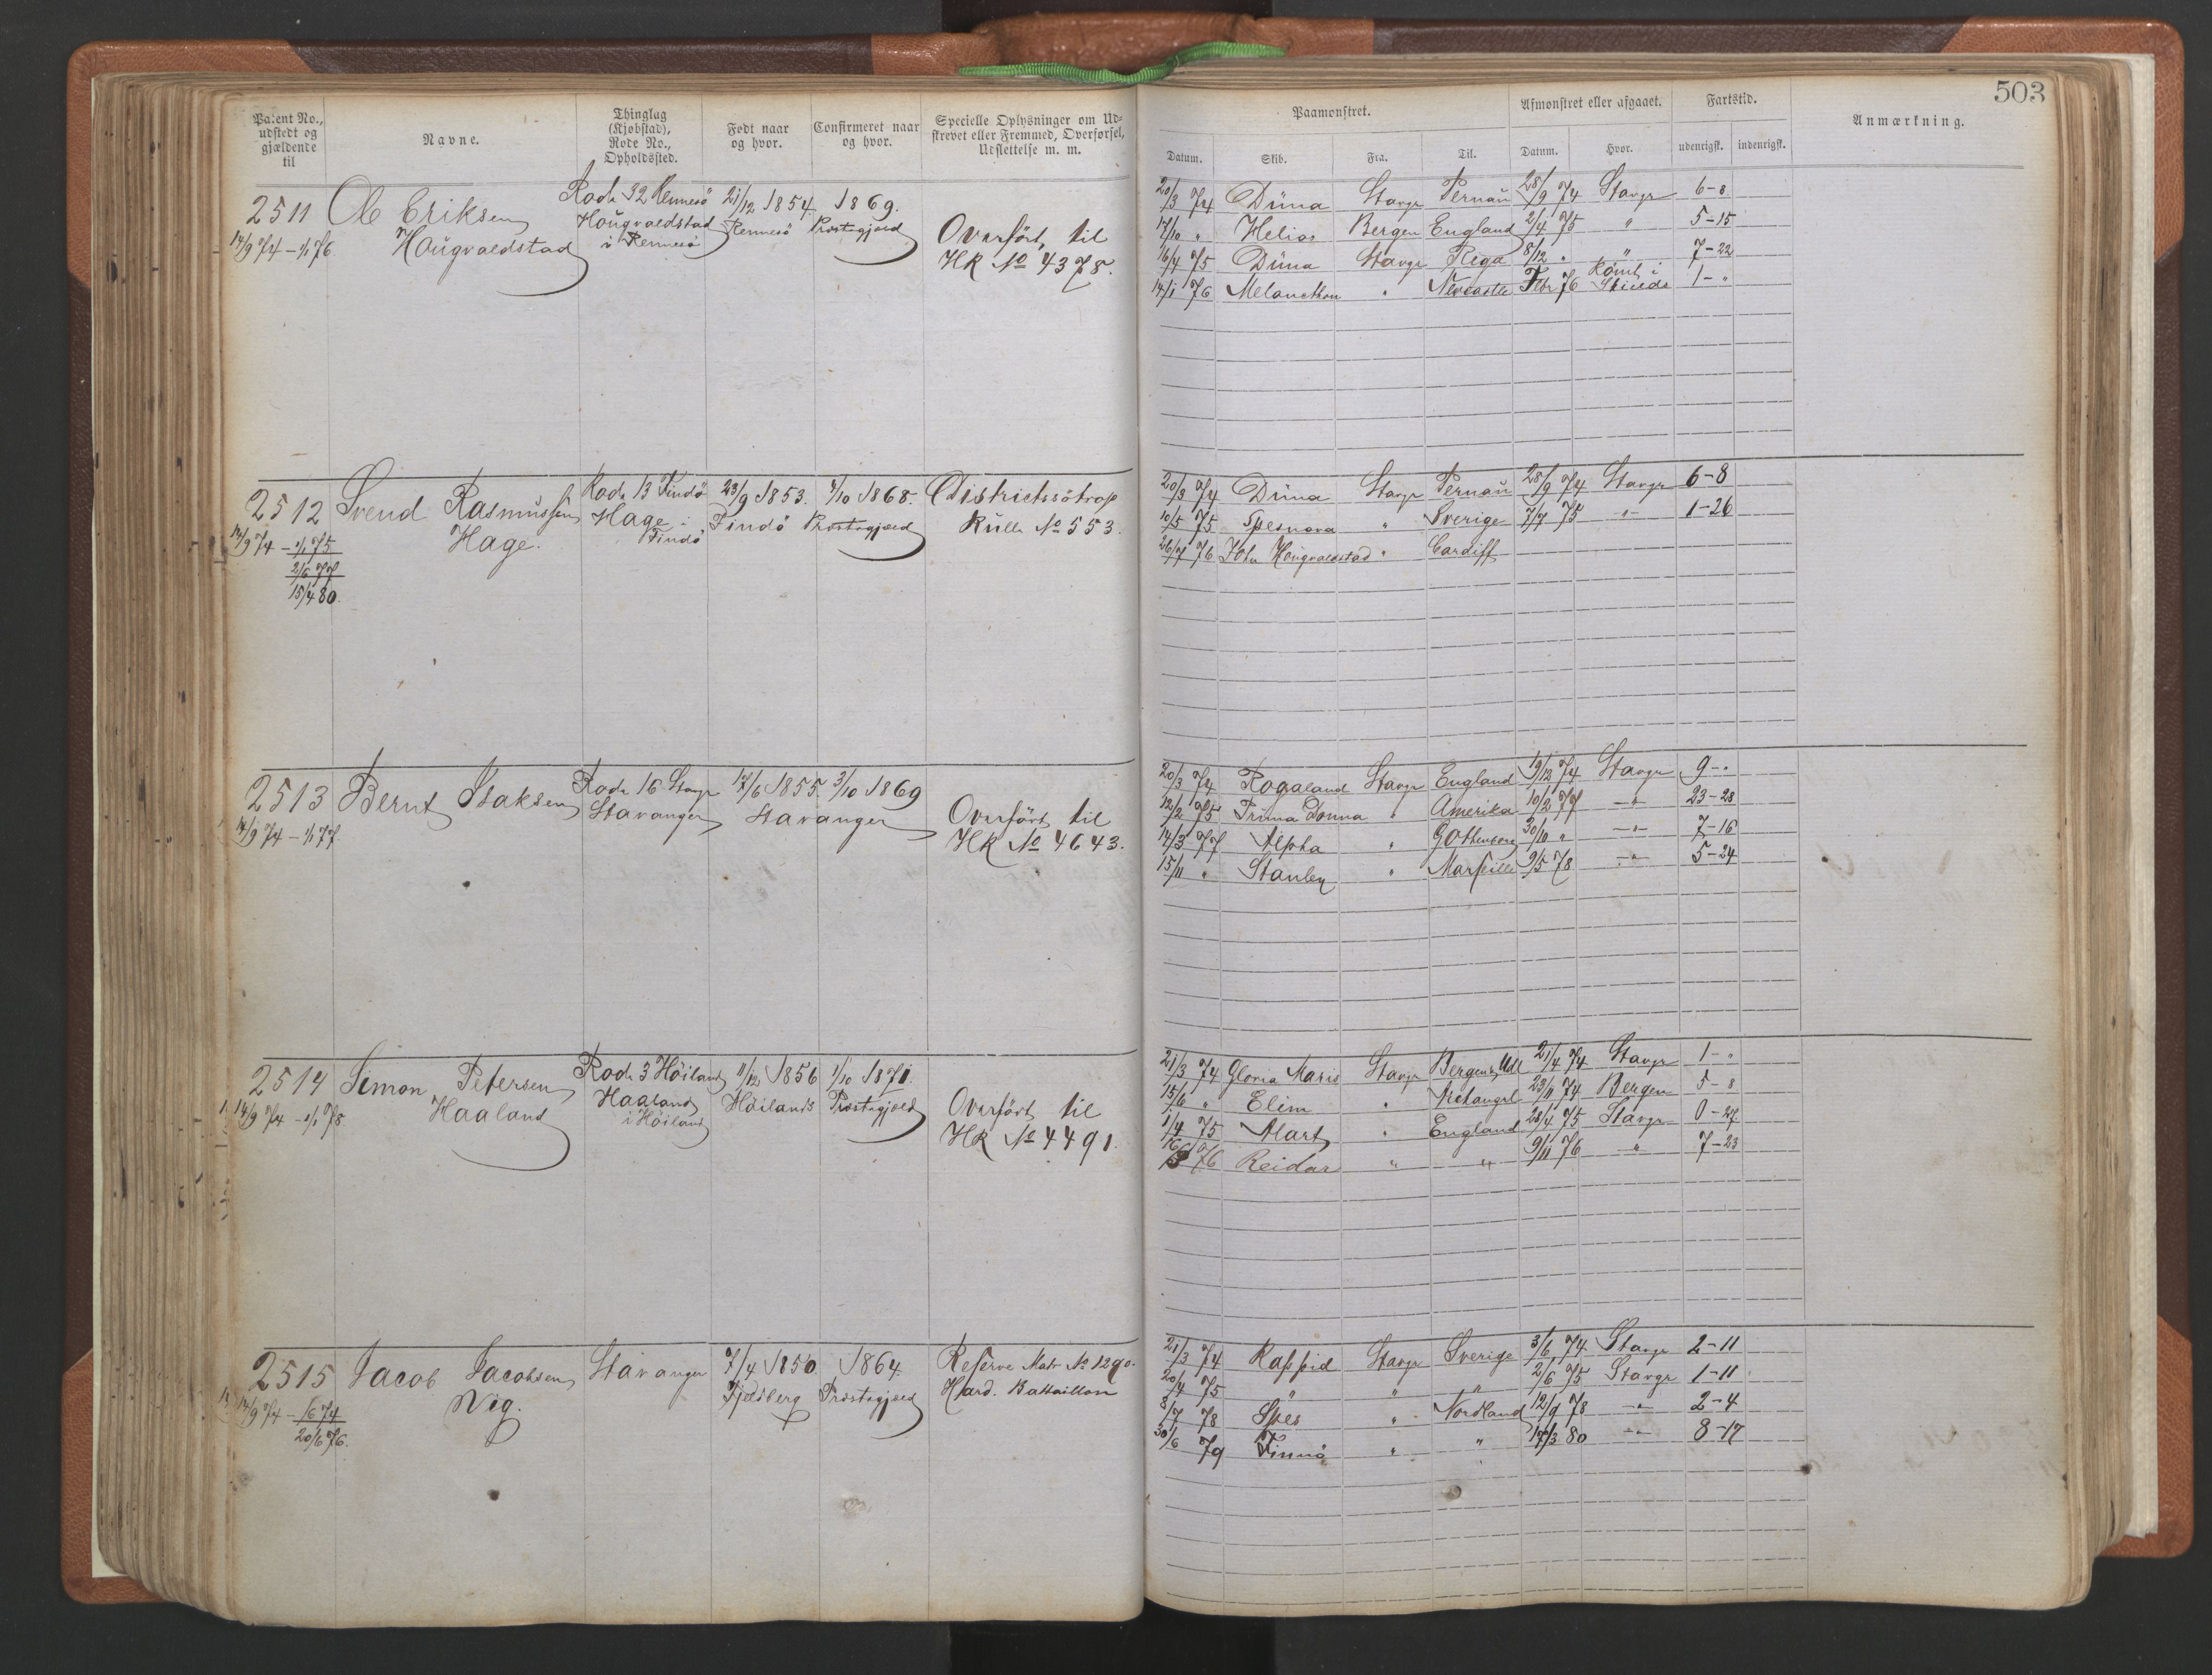 503
Patent No., udstedt og gjældende til
Navne.
Thinglag (Kjøbstad), Rode No., Opholdssted.
Født naar og hvor.
Confirmeret naar og hvor.
Specielle Oplysninger om Udskrevet eller Fremmed, Overførsel, Udslettelse m. m.
Paamønstret.
Afmønstret eller afgaaet.
Fartstid.
Anmærkning.
Datum. Skib. Fra. Til. Datum. Hvor. udenrigsk. indenrigsk.
2511 Ole Eriksen Rode 32 Rennesö 21/12 1854. 1869.
14/9 74 - 1/1 76. Hougvaldstad Hougvaldstad Rennesö Præstegjæld
i Rennesö
Overfört til
HK No 4378.
20/3 74 Düna Stavgr Pernau 28/9 74 Stavgr 6-8
17/10 " Helios Bergen England 2/4 75 " 5-15
16/4 75 Düna Stavgr Riga 8/12 " " 7-22
14/1 76 Melancthon " Newcastle Febr 76 Römt i Shields 1-"
2512 Svend Rasmussen Rode 13 Findö 23/9 1853. 4/10 1868. Districtssötrop
14/9 74 - 1/1 75 Hage. Hage i Findö Findö Præstegjæld Rulle No 553.
2/6 77
15/4 80.
20/3 74 Düna Stavgr Pernau 28/9 74 Stavgr 6-8
10/5 75 Spesnova " Sverige 7/7 75 " 1-26
26/7 76 John Hougvaldstad " Cardiff
2513 Bernt Isaksen Rode 16 Stavgr 17/6 1855. 3/10 1869
14/9 74 - 1/1 77. Stavanger Stavanger
Overfört til
HK No 4643.
20/3 74 Rogaland Stavgr England 19/12 74 Stavgr 9-"
12/2 75 Prima Donna " Amerika 10/2 77 -"- 23-28
14/3 77 Alpha " Gothenborg 30/10 " -"- 7-16
15/11 " Stanley " Marseille 9/5 78 -"- 5-24
2514 Simon Petersen Rode 3 Höiland 11/12 1856 1/10 1871.
14/9 74 - 1/1 78 Haaland Haaland Höilands Præstegjæld
i Höiland
Overfört til
HK No 4491.
21/3 74 Gloria Maris Stavgr Bergen & Udl 21/4 74 Stavgr 1-"
15/6 " Elim " Archangel 23/11 74 Bergen 5-8
1/4 75 Mart " England 28/4 75 Stavgr 0-27
16/3 76 Reidar " " 9/11 76 " 7-23
2515 Jacob Jacobsen Stavanger 7/4 1850. 1864. Reserve Matr No 1290.
14/9 74 - 1/6 74 Vig. Fjelberg Præstegjæld Hard. Battaillon
20/6 76.
21/3 74 Rappid Stavgr Sverige 3/6 74 Stavgr 2-11
20/4 75 " " " 2/6 75 Stavgr 1-11
8/7 78 Spes " Nordland 12/9 78 -"- 2-4
30/6 79 Finnö " " 17/3 80 -"- 8-17